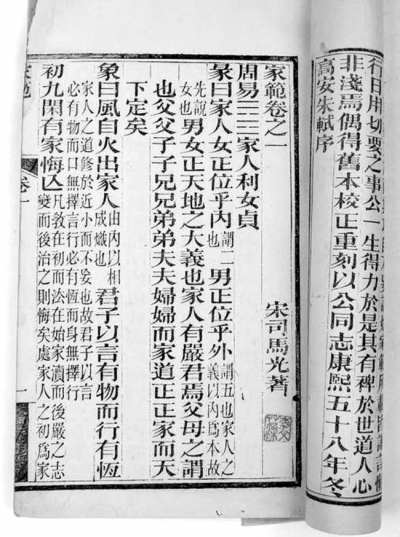 行日用切要之事公一生得力於是其有裨於世道人心
非淺焉偶得舊本校正重刻以公同志康熙五十八年冬
高安朱軾序
家範卷之一
宋司馬光著
周易☴☲家人利女貞
彖曰家人女正位乎內也謂二男正位乎外謂五也家人之義以內為本故
先說女也男女正天地之大義也家人有嚴君焉父母之謂
也父父子子兄兄弟弟夫夫婦婦而家道正正家而天
下定矣
象曰風自火出家人由內以相成熾也君子以言有物而行有恆
家人之道修於近小而不妄也故君子以言必有物而口無擇言行必有恆而身無擇行
初九閑有家悔亡凡教在初而法在始家瀆而後嚴之志變而後治之則悔矣處家人之初為家
卷一
一